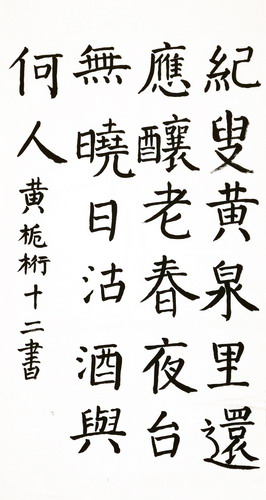 紀叟黄泉里還
應釀老春夜台
無曉日沽酒與
何人 黄栀桁十二書